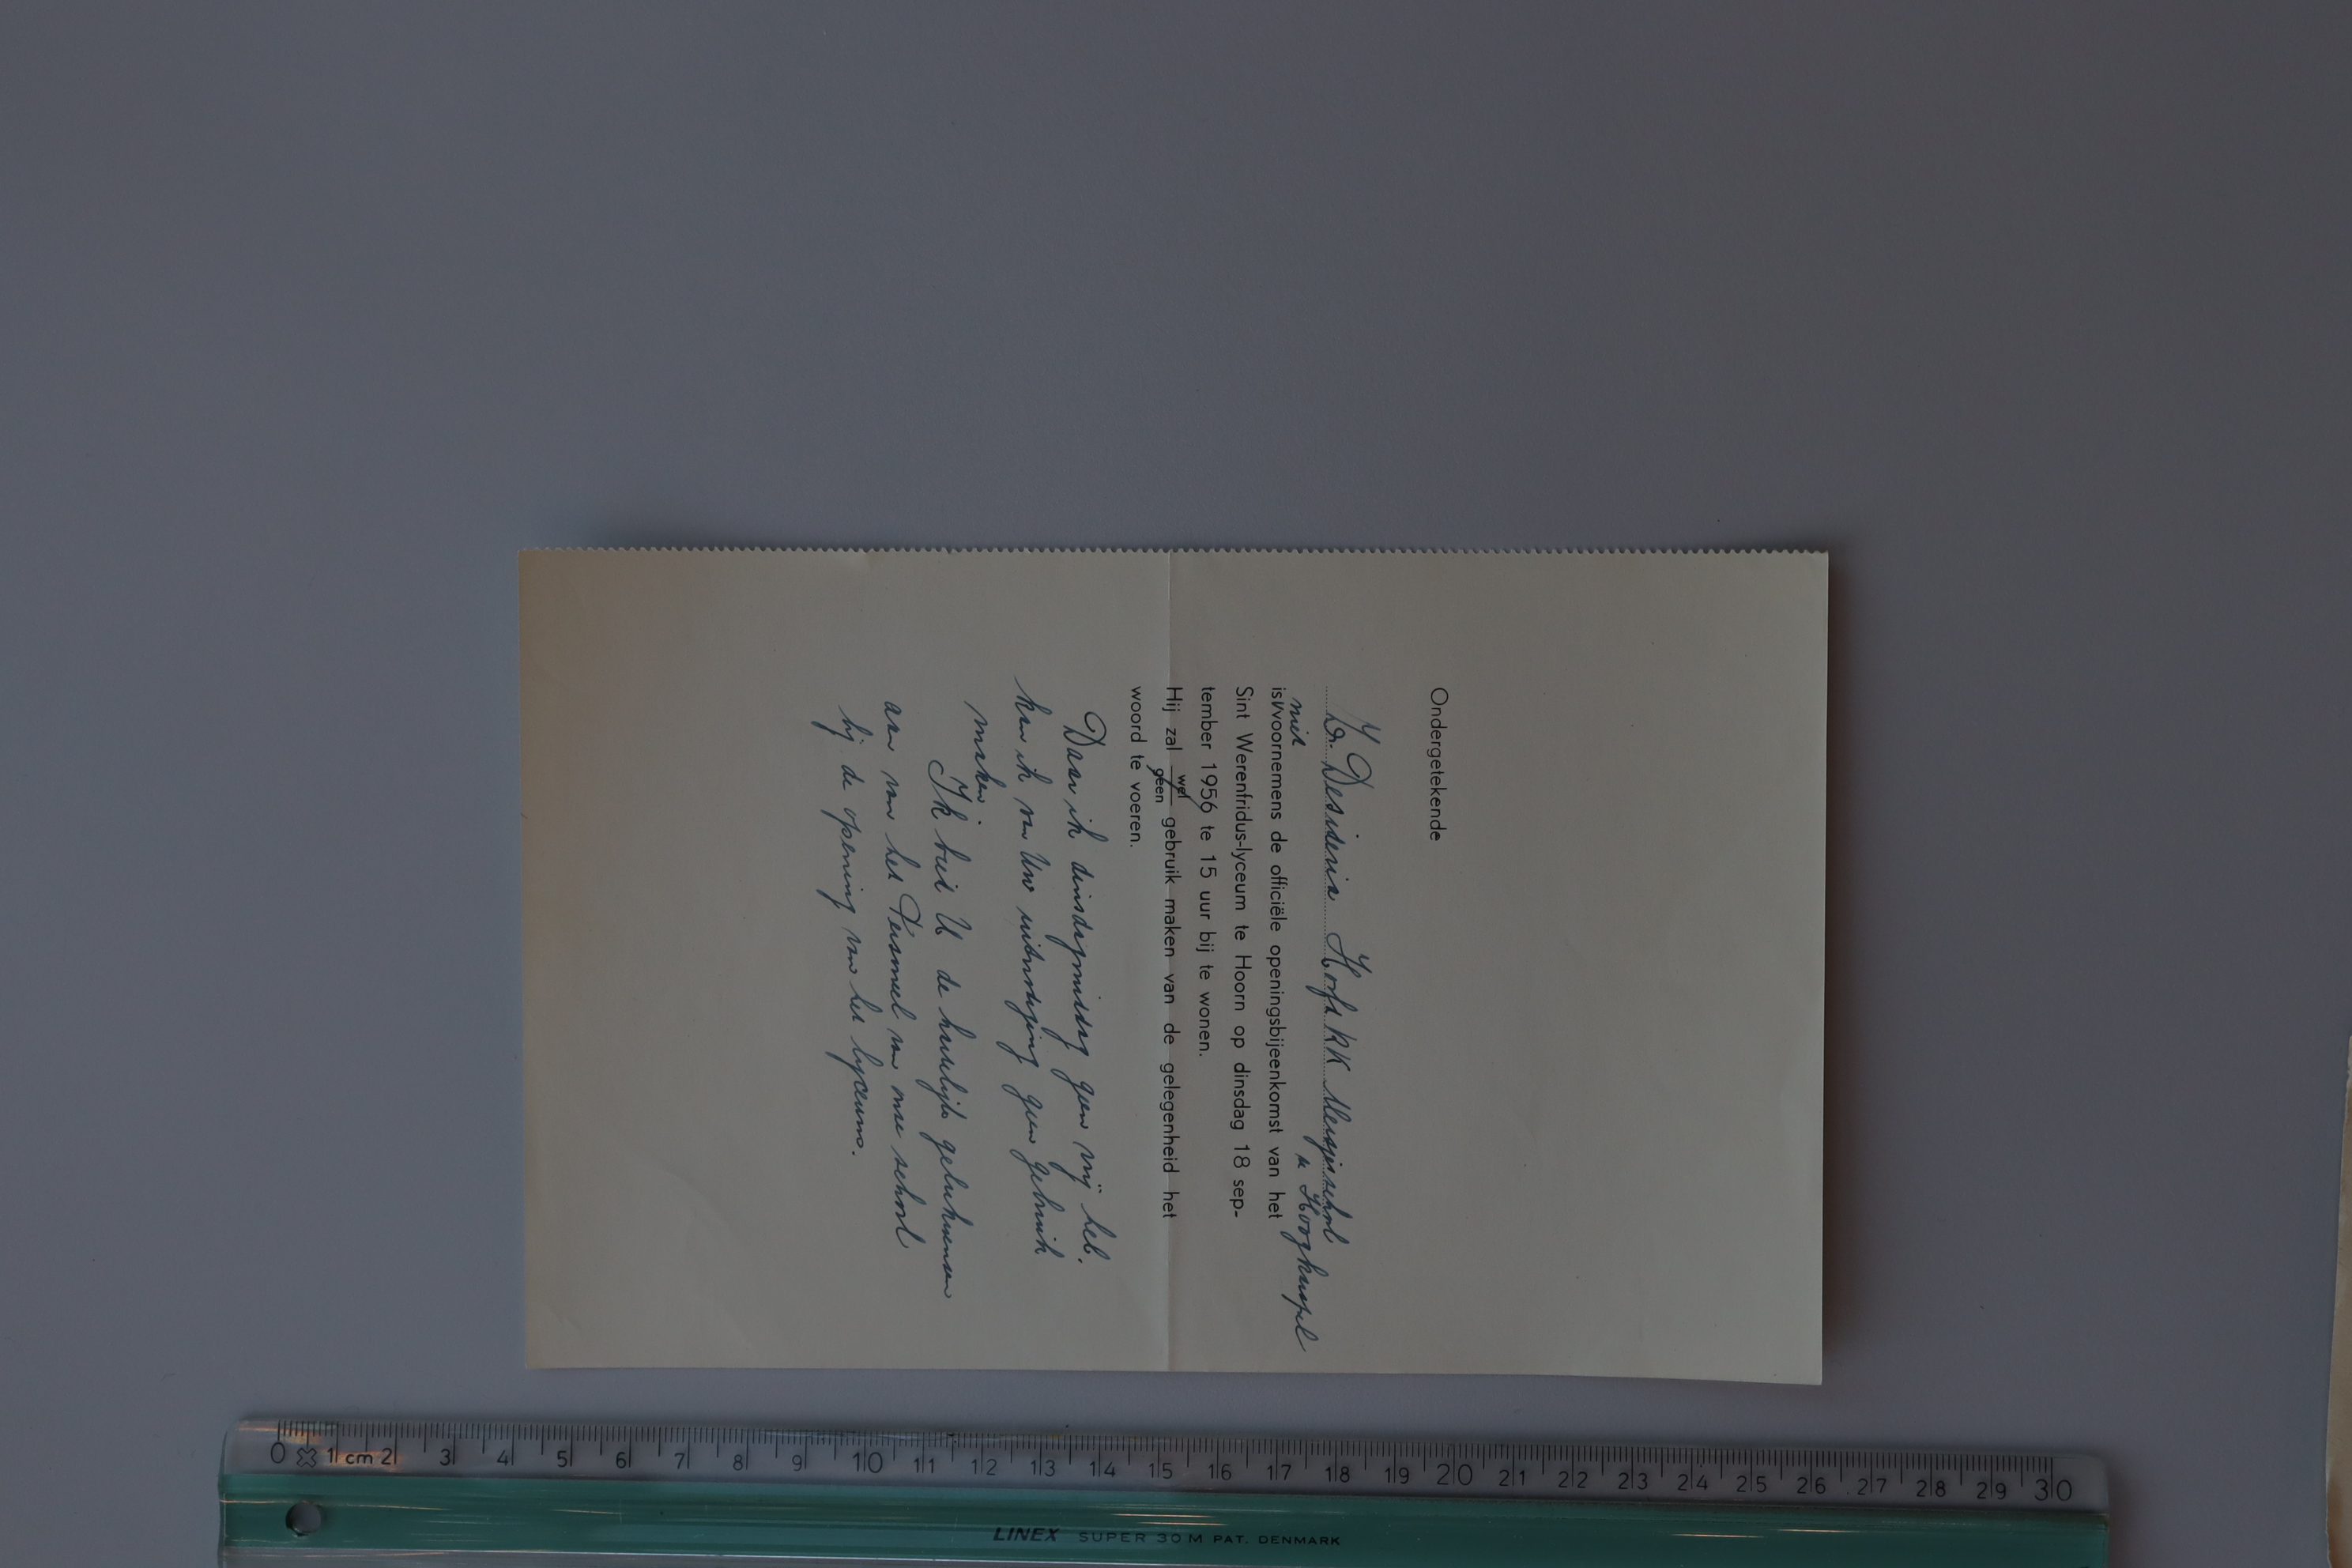 Ondergetekende
Zr. Desideria Hofd RK Meisjesschool
te Hoogkarspel
niet
is voornemens de officiële openingsbijeenkomst van het
Sint Werenfridus-lyceum te Hoorn op dinsdag 18 sep-
tember 1956 te 15 uur bij te wonen.
Hij zal wel geen gebruik maken van de gelegenheid het
woord te voeren.
Daar ik dinsdagmiddag geen vrij heb.
kan ik van Uw uitnodiging geen gebruik
maken.
Ik bied U de hartelijke gelukwensen
aan van het Personeel van onze school
bij de opening van het lyceum.
0 1 cm 2 3 4 5 6 7 8 9 10 11 12 13 14 15 16 17 18 19 20 21 22 23 24 25 26 27 28 29 30
LINEX SUPER 30 M PAT. DENMARK